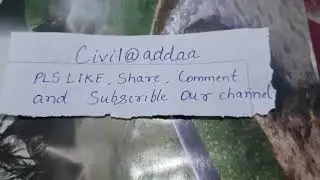 Civil@addaa
PLS LIKE, Share, Comment
and Subscrible Our channel